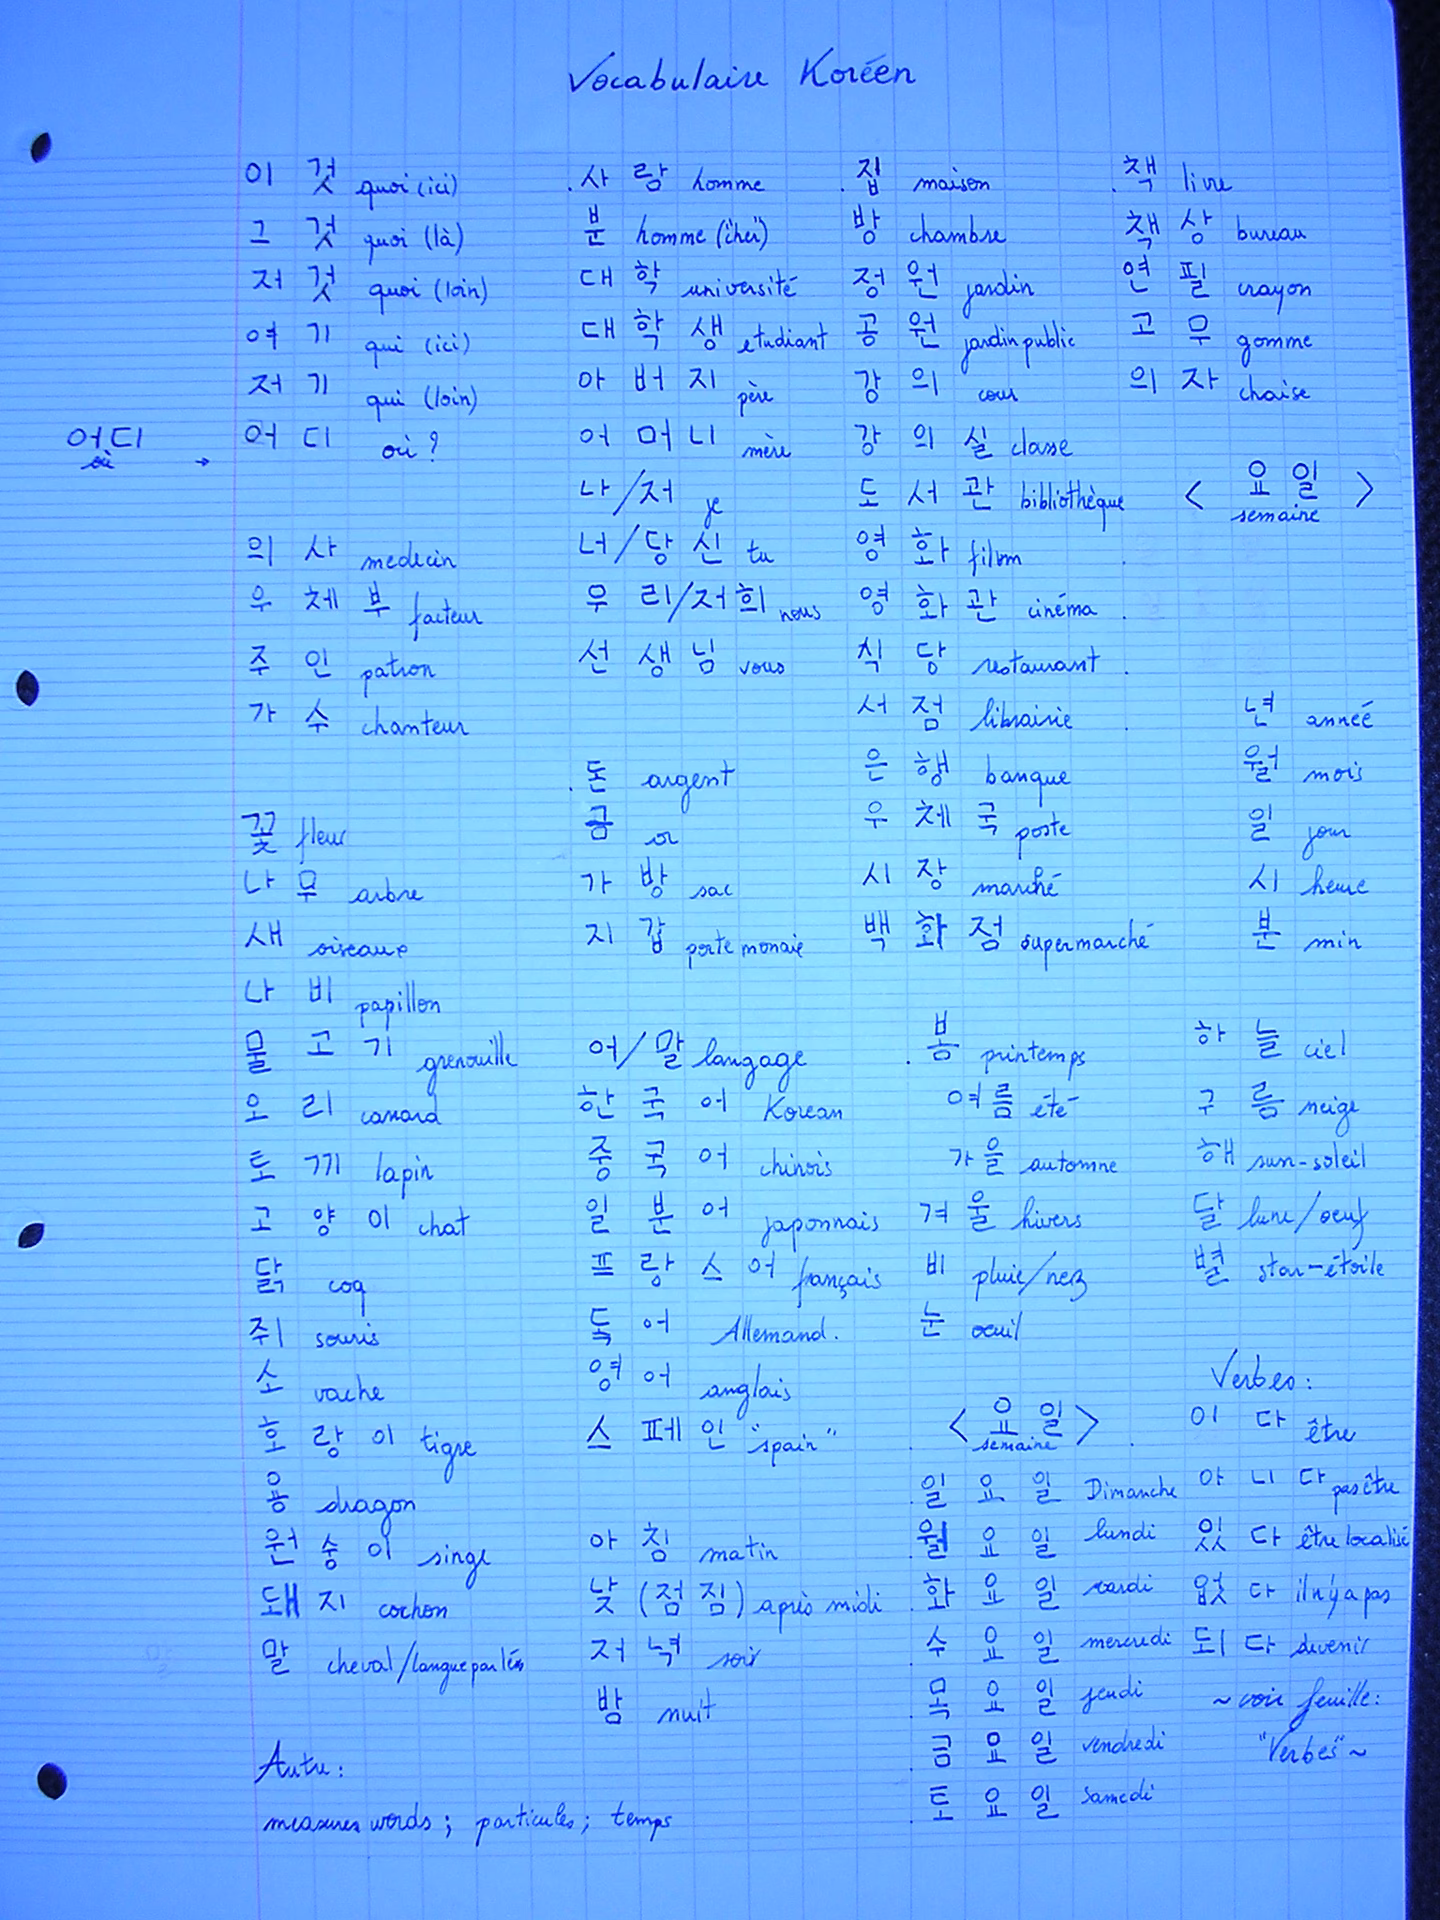 Vocabulaire Koréen
이 것 quoi (ici)
그 것 quoi (là)
저 것 quoi (loin)
여 기 qui (ici)
저 기 qui (loin)
어디 où →
어 디 où ?
의 사 medecin
우 체 부 facteur
주 인 patron
가 수 chanteur
꽃 fleur
나 무 arbre
새 oiseaux
나 비 papillon
물 고 기 grenouille
오 리 canard
토 끼 lapin
고 양 이 chat
닭 coq
쥐 souris
소 vache
호 랑 이 tigre
용 dragon
원 숭 이 singe
돼 지 cochon
말 cheval/langue parlée
Autre :
measures words ; particules ; temps
사 랑 homme
분 homme ("cher")
대 학 université
대 학 생 etudiant
아 버 지 père
어 머 니 mère
나/저 je
너/당 신 tu
우 리/저희 nous
선 생 님 vous
돈 argent
금 or
가 방 sac
지 갑 porte monaie
어/말 langage
한 국 어 Korean
중 국 어 chinois
일 분 어 japonnais
프 랑 스 어 français
독 어 Allemand.
영 어 anglais
스 페 인 "spain"
아 침 matin
낮 (점 짐) après midi
저 녁 soir
밤 nuit
집 maison
방 chambre
정 원 jardin
공 원 jardin public
강 의 cour
강 의 실 classe
도 서 관 bibliothèque
영 화 film
영 화 관 cinéma
식 당 restaurant
서 점 librairie
은 행 banque
우 체 국 poste
시 장 marché
백 화 점 supermarché
봄 printemps
여름 été
가을 automne
겨울 hivers
비 pluie/nez
눈 oeuil
< 요 일 >
semaine
일 요 일 Dimanche
월 요 일 lundi
화 요 일 mardi
수 요 일 mercredi
목 요 일 jeudi
금 요 일 vendredi
토 요 일 samedi
책 livre
책 상 bureau
연 필 crayon
고 무 gomme
의 자 chaise
< 요 일 >
semaine
년 année
월 mois
일 jour
시 heure
분 min
하 늘 ciel
구 름 neige
해 sun-soleil
달 lune/oeuf
별 star-étoile
Verbes :
이 다 être
아 니 다 pas être
있 다 être localisé
없 다 il n'y a pas
되 다 devenir
~ voir feuille :
"Verbes" ~